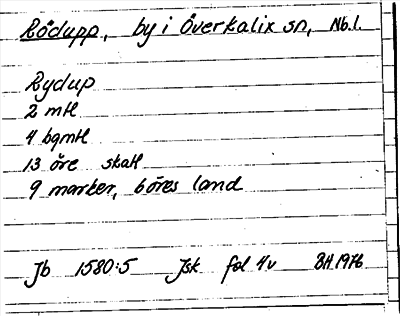 Rödupp, by i Överkalix sn, Nb.l.
Rydup
2 mtl
4 bgmtl
13 öre skatt
9 marker, böres land
Jb 1580:5 Jsk fol 4v BH 1976